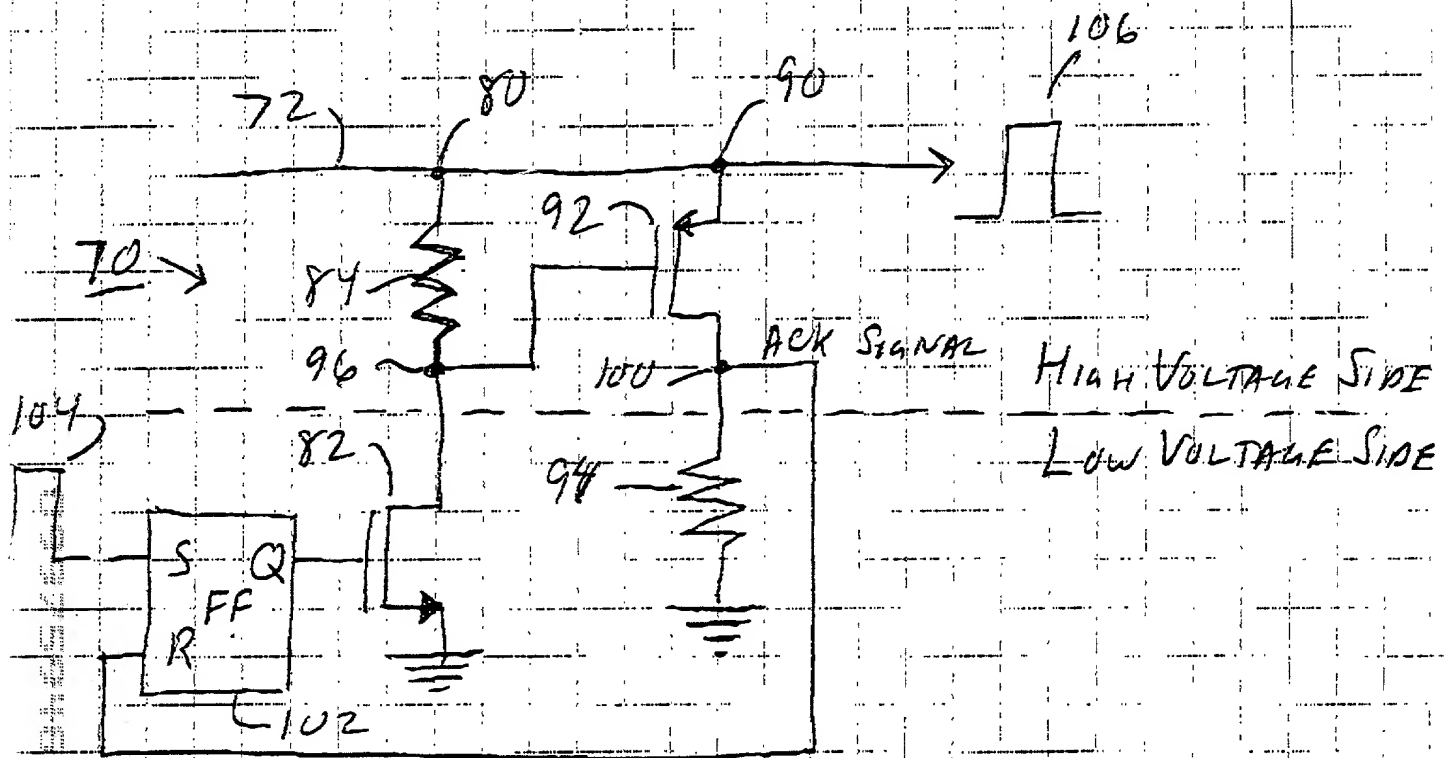 106
72
80
90
92
70
84
96
100
ACK SIGNAL
HIGH VOLTAGE SIDE
104
82
94
LOW VOLTAGE SIDE
S Q
FF
R
102